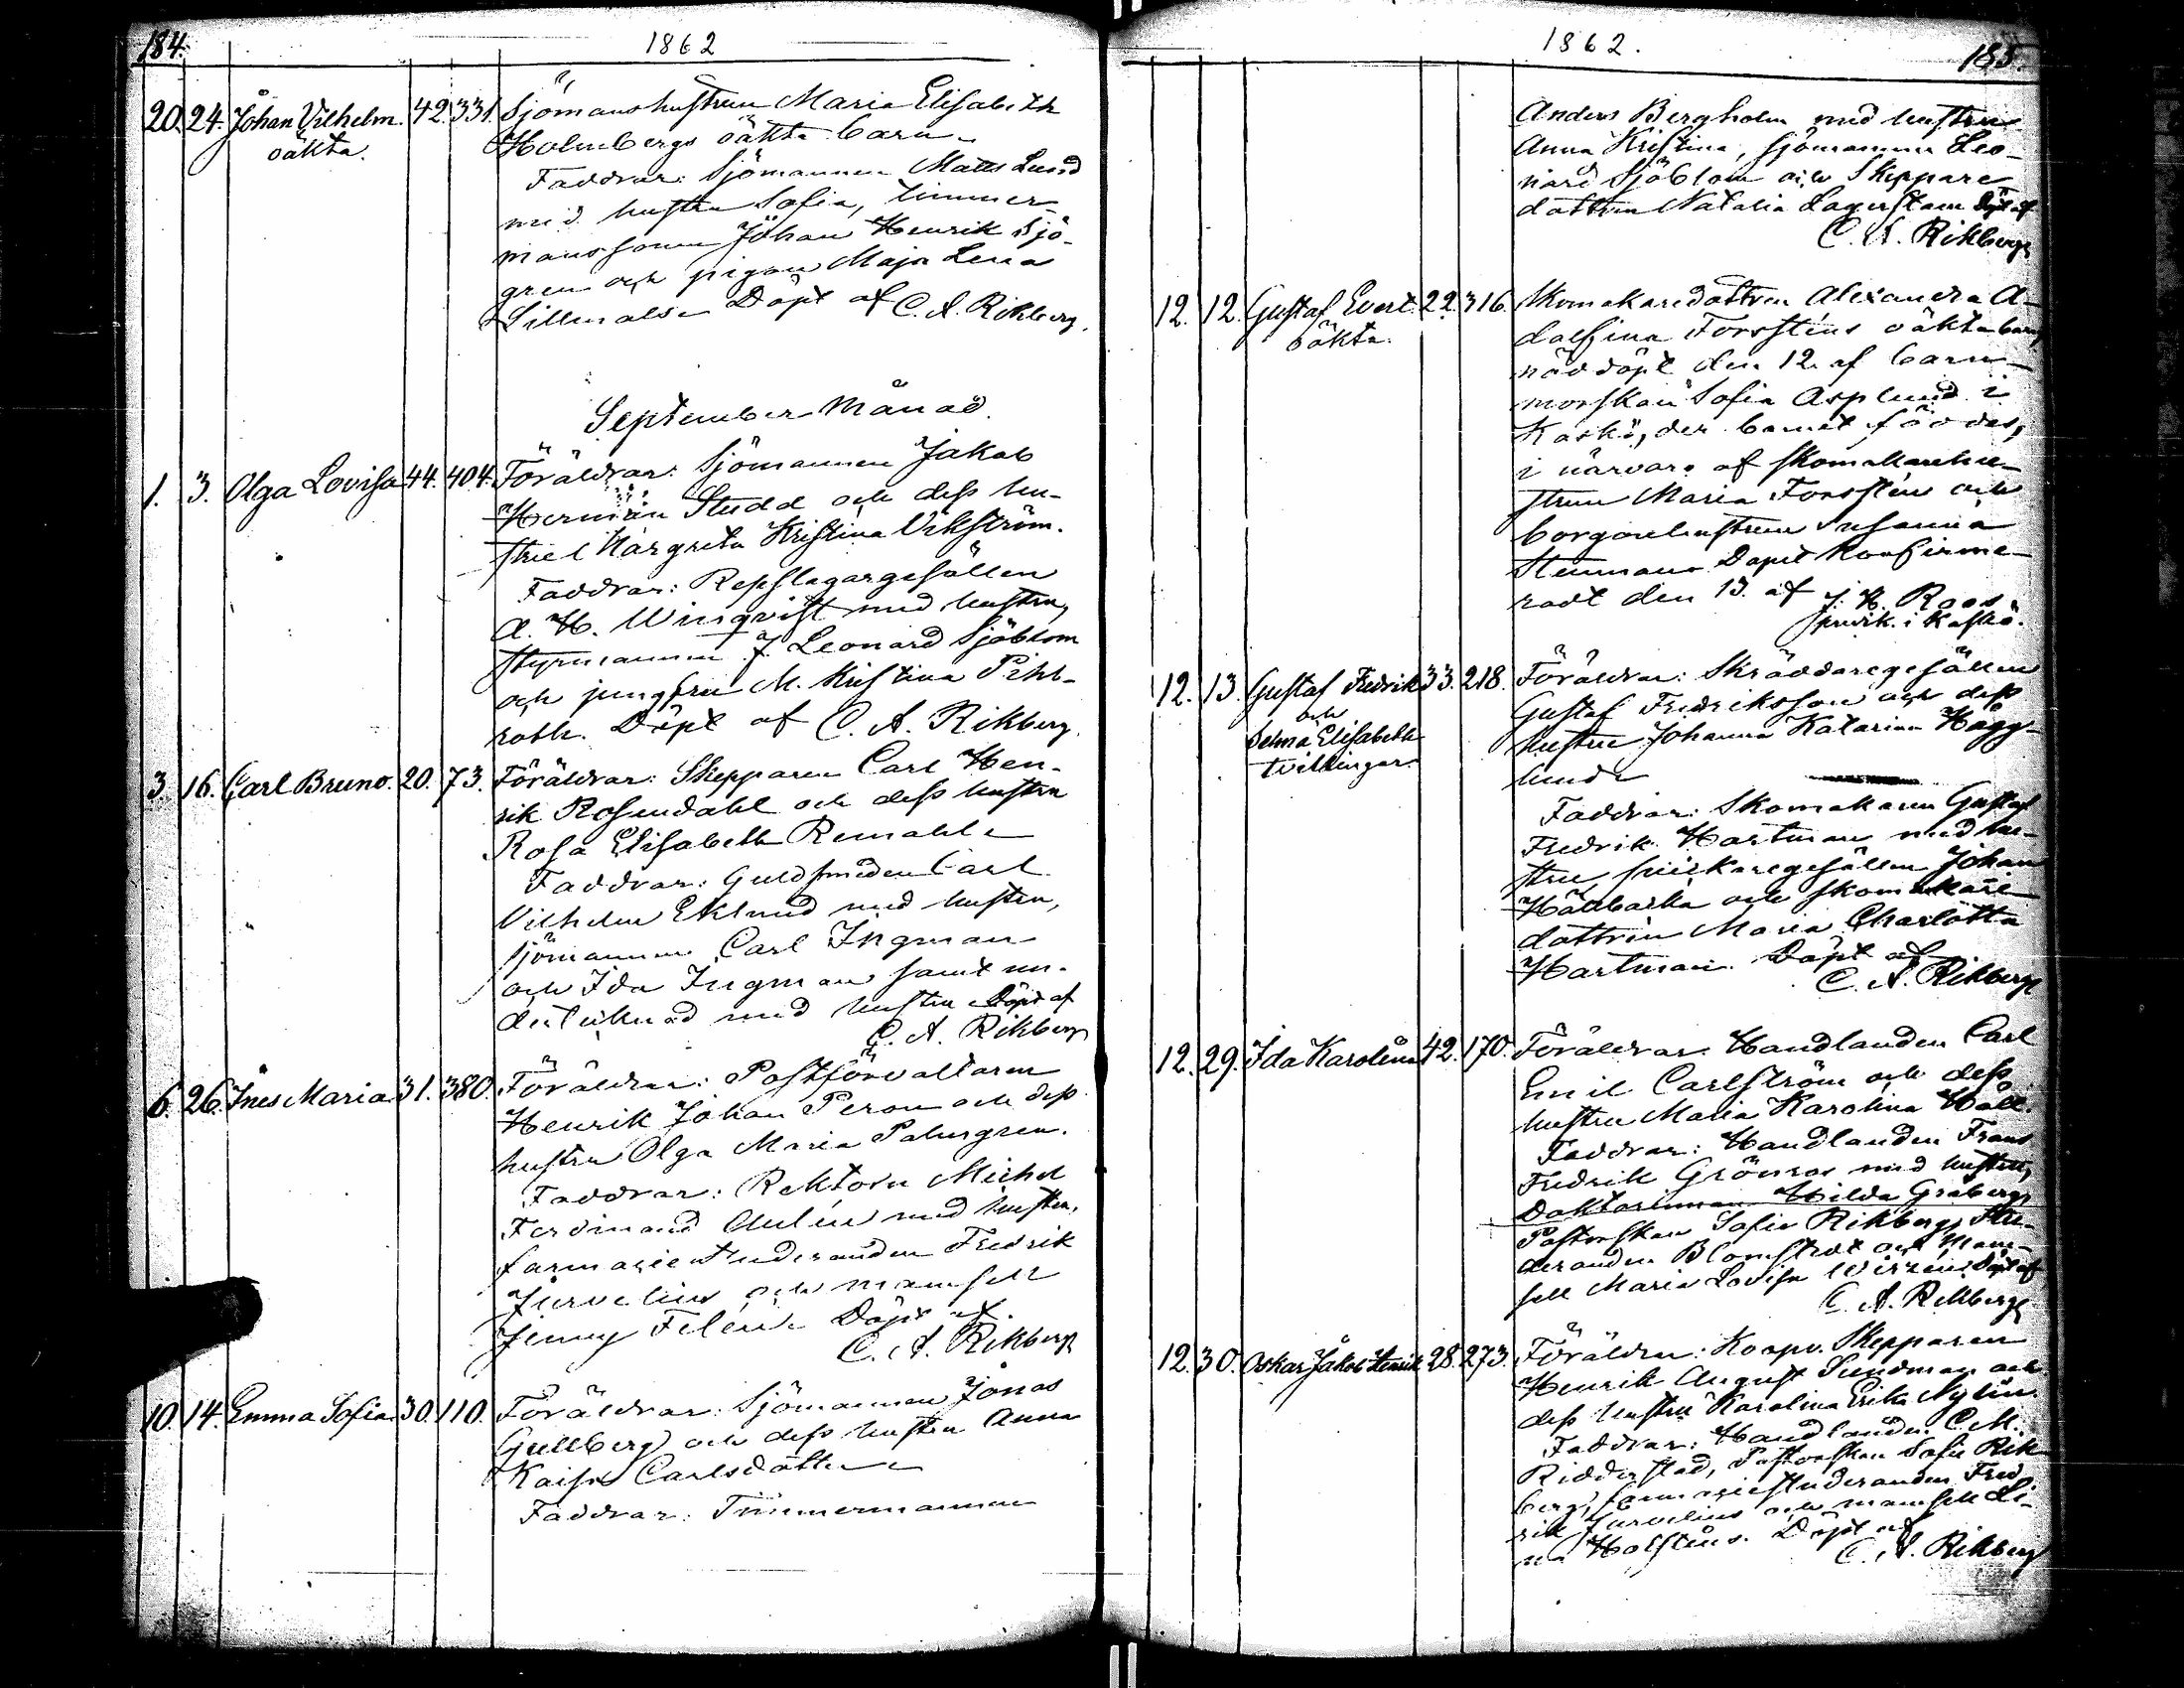 184.
1862
20. 24. Johan Vilhelm. 42. 331. Sjömanshustrun Maria Elisabeth
oäkta. Holmbergs oäkta barn
Faddrar: Sjömannen Matts Lund
med hustru Sofia, timmer-
manssonen Johan Henrik Sjö-
gren och pigan Maja Lena
Lillmalsn Döpt af C. A. Rikberg.
September Månad.
1. 3. Olga Lovisa 44. 404. Föräldrar: Sjömannen Jakob
Herman Studd och dess hu-
stru Margreta Kristina Vikström.
Faddrar: Repslagargesällen
A. H. Winqvist med hustru,
styrmannen J. Leonard Sjöblom
och jungfru M. Kristina Pihl-
roth. Döpt af C. A. Rikberg.
3. 16. Carl Bruno. 20. 73. Föräldrar: Skepparen Carl Hen-
rik Rosendahl och dess hustru
Rosa Elisabeth Remahl
Faddrar: Guldsmeden Carl
Vilhelm Eklund med hustru,
sjömannen Carl Ingman
och Ida Ingman samt un-
med hustru Döpt af
C. A. Rikberg
6. 26. Ines Maria 31. 380. Föräldrar: Postförvaltaren
Henrik Johan Peron och dess
hustru Olga Maria Palmgren.
Faddrar: Rektorn Michel
Ferdinand Aulén med hustru,
farmaciestuderanden Fredrik
Jurvelius och mamsell
Jenny Felén. Döpt af
C. A. Rikberg
10. 14. Emma Sofia 30. 110. Föräldrar: Sjömannen Jonas
Gullberg och dess hustru Anna
Kaisa Carlsdotter
Faddrar: Timmermannen
1862.
185.
Anders Bergholm med hustru
Anna Kristina, sjömannen Leo-
nard Sjöblom och Skeppare
dottren Natalia Lagerstam Döpt af
C. A. Rikberg
12. 12. Gustaf Evert. 22. 316. Skomakaredottren Alexandra A-
oäkta. dolfina Forsténs oäkta barn,
nöddöpt den 12 af barn-
morskan Sofia Asplund i
Kaskö, der barnet föddes,
i närvaro af skomakarehu-
strun Maria Forstén och
borgarehustrun Susanna
Stenman. Dopet konfirme-
radt den 13. af J. H. Roos
predik. i Kaskö.
12. 13. Gustaf Fredrik 33. 218. Föräldrar: Skräddaregesällen
och Gustaf Fredriksson och dess
Selma Elisabeth hustru Johanna Katarina Hägg-
tvillingar. lund
Faddrar: Skomakaren Gustaf
Fredrik Hartman med hu-
stru snickaregesällen Johan
och skomakare
dottren Maria Charlotta
Hartman. Döpt af
C. A. Rikberg
12. 29. Ida Karolina 42. 170. Föräldrar: Handlanden Carl
Emil Carlström och dess
hustru Maria Karolina Häll.
Faddrar: Handlanden Frans
Fredrik Grönroos med hustru,
Doktorinnan Hilda Graberg,
Pastorskan Sofie Rikberg, Stu-
deranden Blomstedt och Mam-
sell Maria Lovisa Wirzén. Döpt af
C. A. Rikberg
12. 30. Oskar Jakob Henrik 28. 273. Föräldrar: Koopv. Skepparen
Henrik August Sundman och
dess hustru Karolina Erika Nylén.
Faddrar: Handlanden C. M.
Ridderstad, Pastorskan Sofie Rik
berg, farmaciestuderanden Fred
rik Jurvelius och mamsell Li-
na Holsténs. Döpt af
C. A. Rikberg